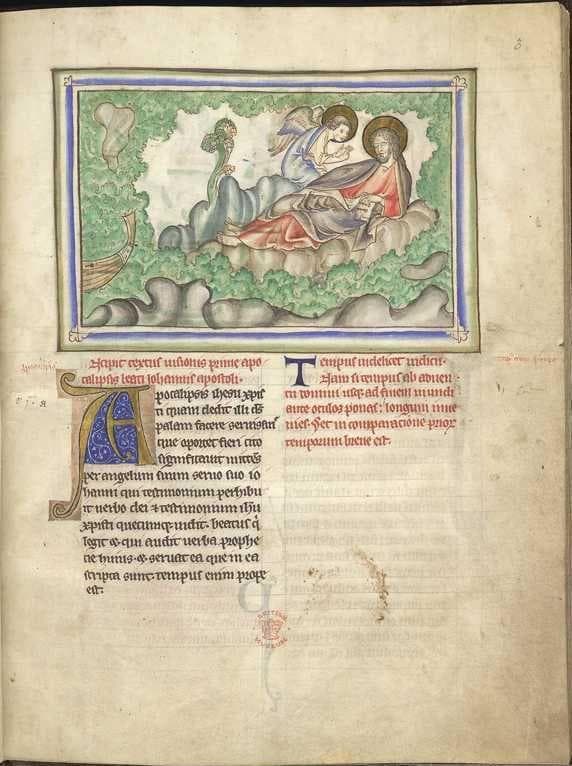 Incipit textus visionis prime apo
calipsis beati Johannis apostoli.
Apocalipsis ihesu xpisti
ti quam dedit illi ds
palam facere seruis suis
que oportet fieri cito
significauit mittens
per angelum suum seruo suo io
hanni qui testimonium perhibu
it verbo dei & testimonium ihu
xpisti quecumque uidit. beatus q
legit & qui audit verba prophe
tie huius. & seruat ea que in ea
scripta sunt. tempus enim prope
est.
Tempus uidelicet iudicii.
Nam si tempus ab aduen
tu domini usque ad finem mundi
ante oculos ponas. longum inue
nies. Set in comparacione prior
temporum breue est.
BRITISH
MUSEUM